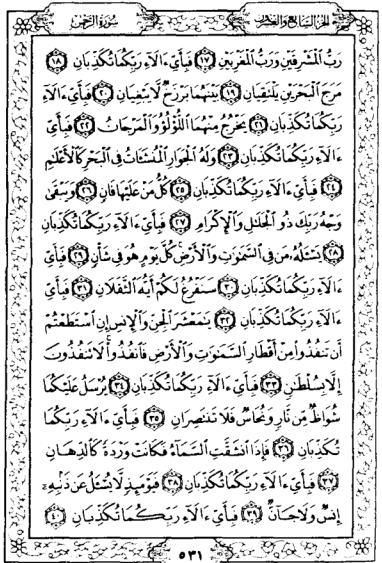 الجزء السابع والعشرون
سورة الرحمن
رَبُّ ٱلْمَشْرِقَيْنِ وَرَبُّ ٱلْمَغْرِبَيْنِ ١٧ فَبِأَىِّ ءَالَآءِ رَبِّكُمَا تُكَذِّبَانِ ١٨
مَرَجَ ٱلْبَحْرَيْنِ يَلْتَقِيَانِ ١٩ بَيْنَهُمَا بَرْزَخٌ لَّا يَبْغِيَانِ ٢٠ فَبِأَىِّ ءَالَآءِ
رَبِّكُمَا تُكَذِّبَانِ ٢١ يَخْرُجُ مِنْهُمَا ٱللُّؤْلُؤُ وَٱلْمَرْجَانُ ٢٢ فَبِأَىِّ
ءَالَآءِ رَبِّكُمَا تُكَذِّبَانِ ٢٣ وَلَهُ ٱلْجَوَارِ ٱلْمُنشَـَٔاتُ فِى ٱلْبَحْرِ كَٱلْأَعْلَٰمِ
٢٤ فَبِأَىِّ ءَالَآءِ رَبِّكُمَا تُكَذِّبَانِ ٢٥ كُلُّ مَنْ عَلَيْهَا فَانٍ ٢٦ وَيَبْقَىٰ
وَجْهُ رَبِّكَ ذُو ٱلْجَلَٰلِ وَٱلْإِكْرَامِ ٢٧ فَبِأَىِّ ءَالَآءِ رَبِّكُمَا تُكَذِّبَانِ
٢٨ يَسْـَٔلُهُۥ مَن فِى ٱلسَّمَٰوَٰتِ وَٱلْأَرْضِ كُلَّ يَوْمٍ هُوَ فِى شَأْنٍ ٢٩ فَبِأَىِّ
ءَالَآءِ رَبِّكُمَا تُكَذِّبَانِ ٣٠ سَنَفْرُغُ لَكُمْ أَيُّهَ ٱلثَّقَلَانِ ٣١ فَبِأَىِّ
ءَالَآءِ رَبِّكُمَا تُكَذِّبَانِ ٣٢ يَٰمَعْشَرَ ٱلْجِنِّ وَٱلْإِنسِ إِنِ ٱسْتَطَعْتُمْ
أَن تَنفُذُوا۟ مِنْ أَقْطَارِ ٱلسَّمَٰوَٰتِ وَٱلْأَرْضِ فَٱنفُذُوا۟ لَا تَنفُذُونَ
إِلَّا بِسُلْطَٰنٍ ٣٣ فَبِأَىِّ ءَالَآءِ رَبِّكُمَا تُكَذِّبَانِ ٣٤ يُرْسَلُ عَلَيْكُمَا
شُوَاظٌ مِّن نَّارٍ وَنُحَاسٌ فَلَا تَنتَصِرَانِ ٣٥ فَبِأَىِّ ءَالَآءِ رَبِّكُمَا
تُكَذِّبَانِ ٣٦ فَإِذَا ٱنشَقَّتِ ٱلسَّمَآءُ فَكَانَتْ وَرْدَةً كَٱلدِّهَانِ
٣٧ فَبِأَىِّ ءَالَآءِ رَبِّكُمَا تُكَذِّبَانِ ٣٨ فَيَوْمَئِذٍ لَّا يُسْـَٔلُ عَن ذَنۢبِهِۦٓ
إِنسٌ وَلَا جَآنٌّ ٣٩ فَبِأَىِّ ءَالَآءِ رَبِّكُمَا تُكَذِّبَانِ ٤٠
٥٣١